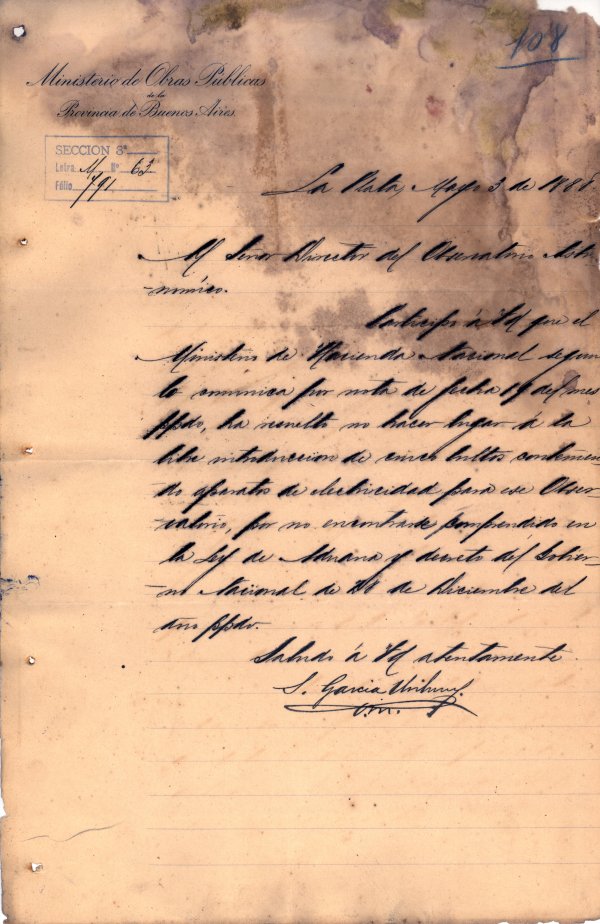 108
Ministerio de Obras Públicas
de la
Provincia de Buenos Aires
SECCION 3ª
Letra M Nº 62
Fólio 791
La Plata, Mayo 3 de 1888.
Al Señor Director del Observatorio Astro-
nomico.
Participo á Vd que el
Ministerio de Hacienda Nacional segun
lo comunica por nota de fecha 19 del mes
ppdo, ha resuelto no hacer lugar á la
libre introduccion de cinco bultos contenien-
do aparatos de electricidad para ese Obser-
vatorio, por no encontrarse comprendido en
la Ley de Aduana y decreto del Gobier-
no Nacional de 28 de Diciembre del
año ppdo.
Saludo á Vd atentamente
S. Garcia Uriburu